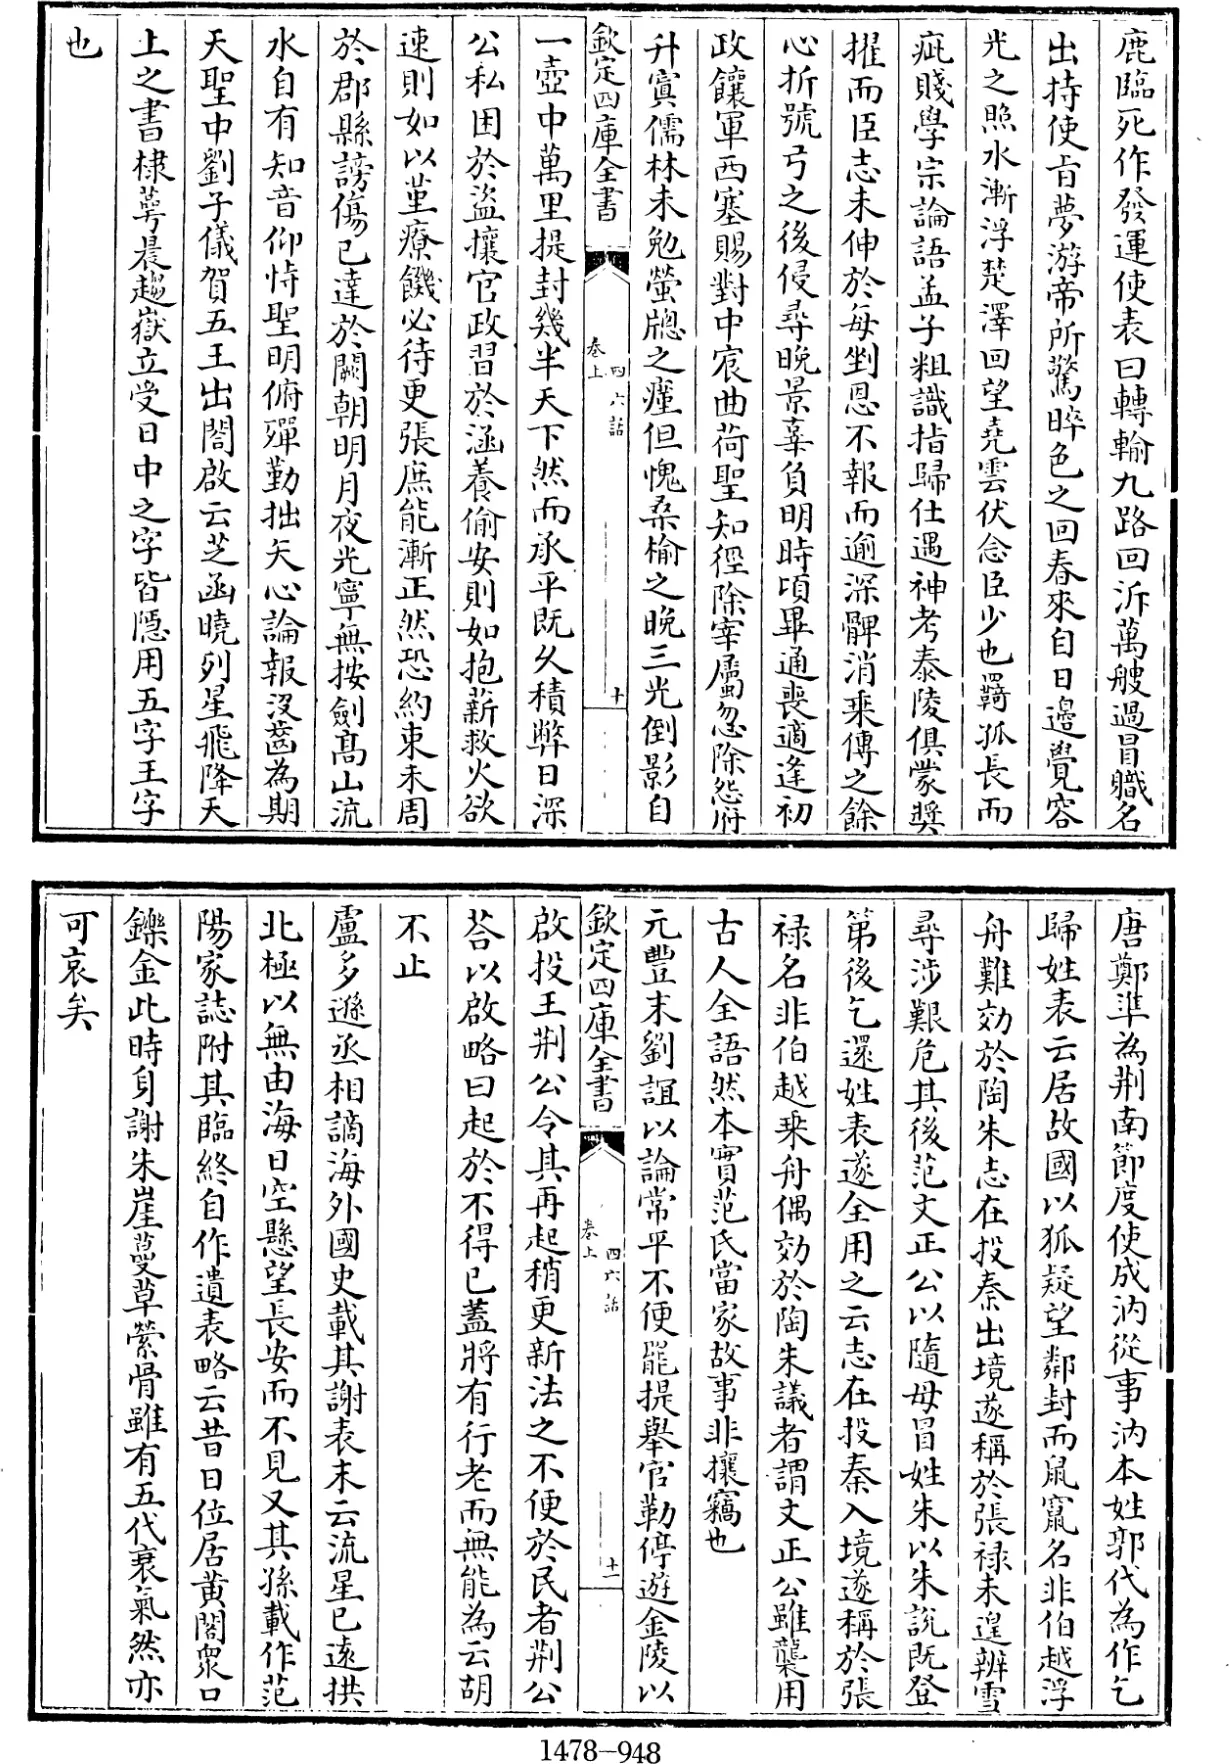 鹿臨死作發運使表曰轉輸九路回泝萬艘過冒職名
出持使旨夢游帝所驚睟色之回春來自日邊覺容
光之照水漸浮楚澤回望堯雲伏念臣少也羇孤長而
疵賤學宗論語孟子粗識指歸仕遇神考泰陵俱蒙奬
擢而臣志未伸於每剉恩不報而逾深髀消乘傳之餘
心折號弓之後侵尋晚景辜負明時頃畢通喪適逢初
政饟軍西塞賜對中宸曲荷聖知徑除宰屬忽除怨府
升寘儒林未勉螢牕之癯但愧桑榆之晚三光倒影自
欽定四庫全書
卷上
四六話
十
一壺中萬里提封幾半天下然而承平既久積弊日深
公私困於盜攘官政習於涵養偷安則如抱薪救火欲
速則如以堇療饑必待更張庶能漸正然恐約束未周
於郡縣謗傷已達於闕朝明月夜光寧無按劍高山流
水自有知音仰恃聖明俯殫勤拙矢心論報沒齒為期
天聖中劉子儀賀五王出閤啟云芝函曉列星飛降天
上之書棣萼晨趨嶽立受日中之字皆隱用五字王字
也
唐鄭準為荆南節度使成汭從事汭本姓郭代為作乞
歸姓表云居故國以狐疑望鄰封而鼠竄名非伯越浮
舟難効於陶朱志在投秦出境遂稱於張禄未遑辨雪
尋涉艱危其後范文正公以隨母冒姓朱以朱説既登
第後乞還姓表遂全用之云志在投秦入境遂稱於張
禄名非伯越乘舟偶効於陶朱議者謂文正公雖襲用
古人全語然本實范氏當家故事非攘竊也
元豐末劉誼以論常平不便罷提舉官勒停遊金陵以
欽定四庫全書
卷上
四六話
十一
啟投王荆公令其再起稍更新法之不便於民者荆公
荅以啟略曰起於不得已蓋將有行老而無能為云胡
不止
盧多遜丞相謫海外國史載其謝表末云流星已遠拱
北極以無由海日空懸望長安而不見又其孫載作范
陽家誌附其臨終自作遺表略云昔日位居黄閣衆口
鑠金此時身謝朱崖蔓草縈骨雖有五代衰氣然亦
可哀矣
1478-948